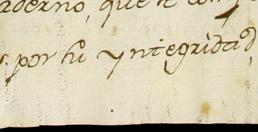 aderno, que se comp
por su yntegridad